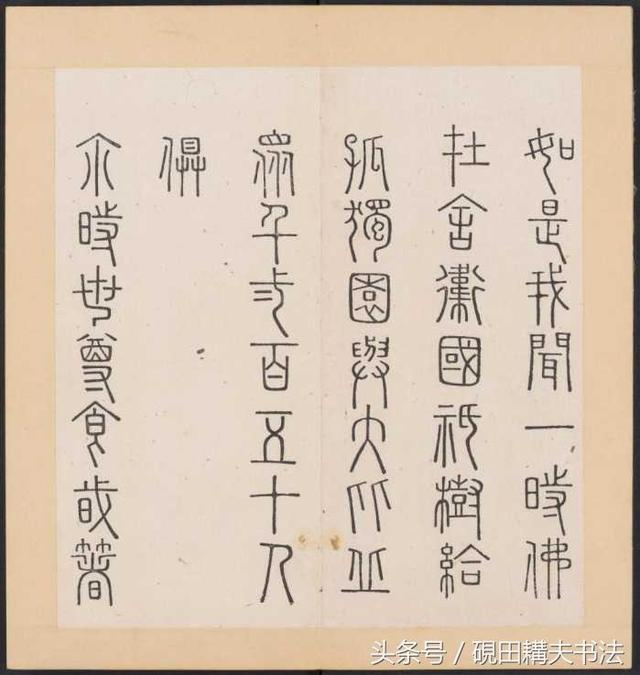 如是我聞一時佛
在舍衞國祇樹給
孤獨園與大比丘
眾千二百五十人
俱
尒時世尊食時著
头条号 / 硯田耩夫书法